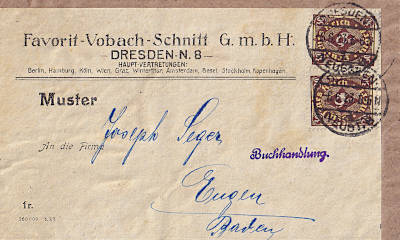 Favorit-Vobach-Schnitt G. m. b. H.
DRESDEN-N. 8
HAUPT-VERTRETUNGEN:
Berlin, Hamburg, Köln, Wien, Graz, Winterthur, Amsterdam, Basel, Stockholm, Kopenhagen.
Muster
Joseph Seger
An die Firma
Buchhandlung.
Engen
Baden
fr.